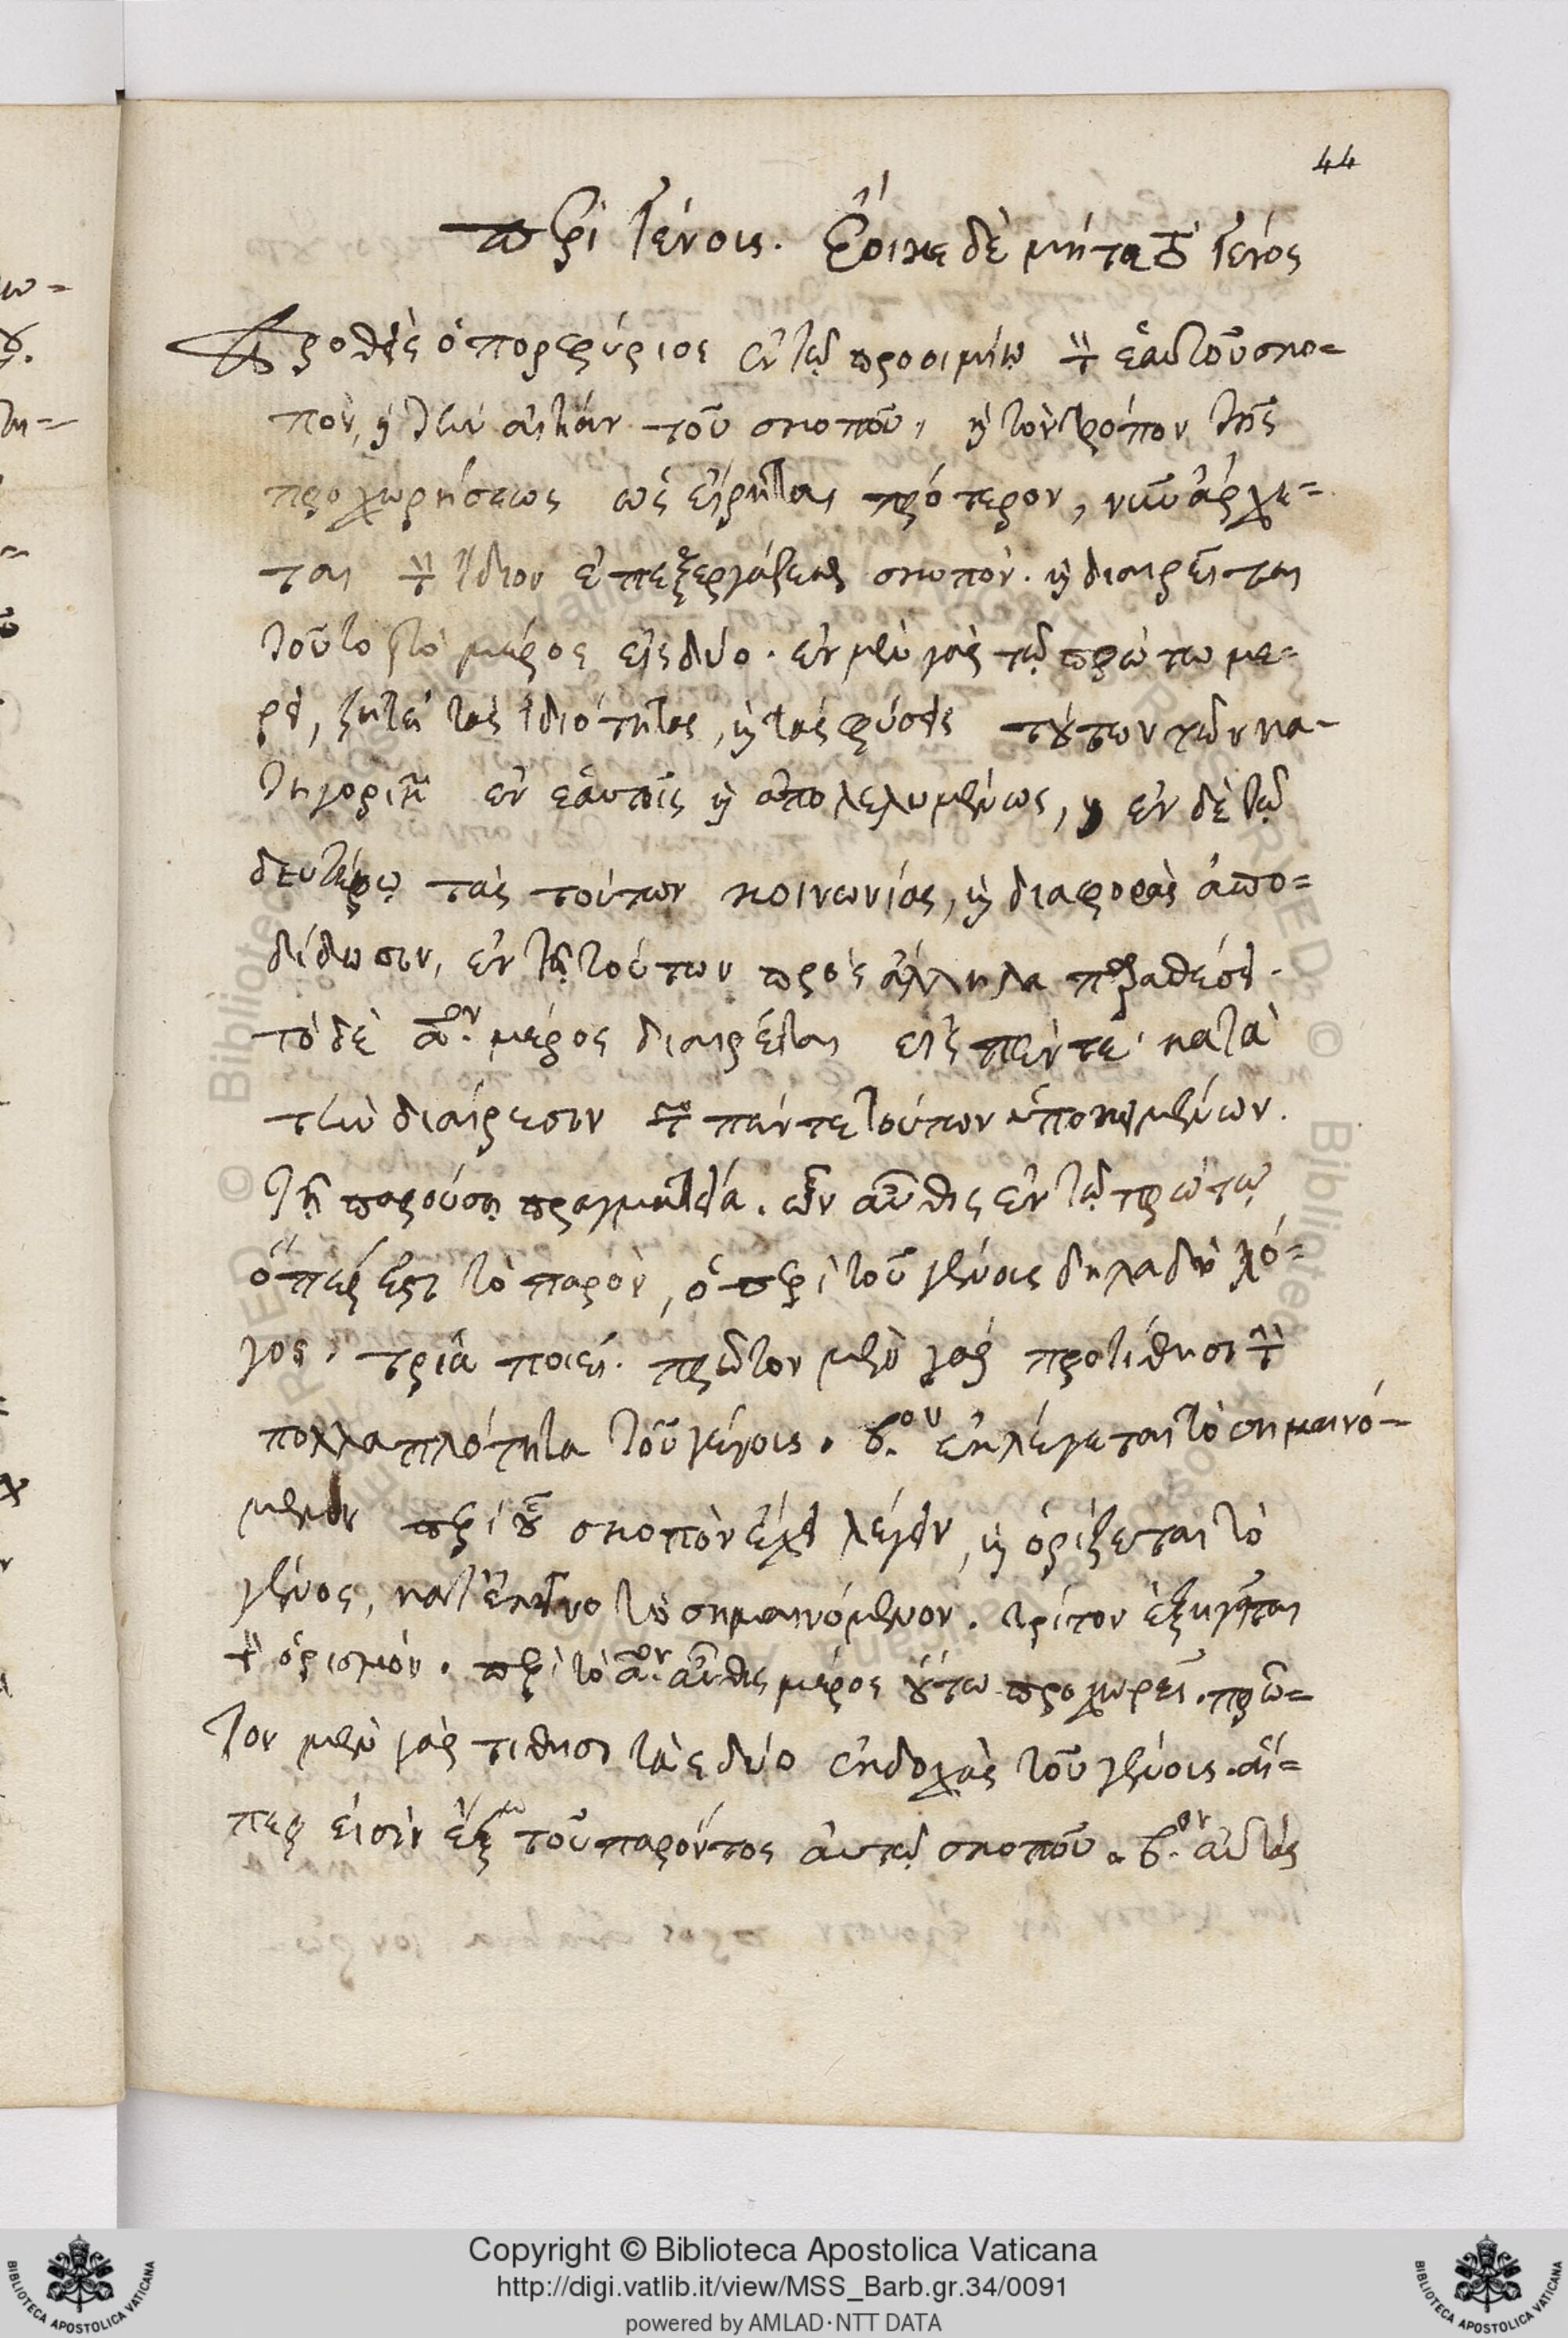 44
περὶ Γένους. Ἔοικε δὲ μήτε τὸ Γένος
Προθεὶς ὁ πορφύριος ἐν τῷ προοιμίῳ τὸν ἑαυτοῦ σκο=
πὸν, καὶ τὴν αἰτίαν τοῦ σκοποῦ, καὶ τὸν τρόπον τῆς
προχωρήσεως ὡς εἴρηται πρότερον, νῦν ἄρχε=
ται τὸν ἴδιον ἐπεξεργάζεσθαι σκοπόν. καὶ διαιρεῖται
τοῦτο τὸ μέρος εἰς δύο. ἐν μὲν γὰρ τῷ πρώτῳ με=
ρει, ζητεῖ τὰς ἰδιότητας, καὶ τὰς φύσεις τούτων τῶν κα=
τηγοριῶν ἐν ἑαυτοῖς καὶ ἀπολελυμένως, ἐν δὲ τῷ
δευτέρῳ τὰς τούτων κοινωνίας, καὶ διαφορὰς ἀπο=
δίδωσιν, ἐν τῇ τούτων πρὸς ἄλληλα παραθέσει.
τὸ δὲ αον. μέρος διαιρεῖται εἰς πέντε κατὰ
τὴν διαίρεσιν τῶν πέντε τούτων ὑποκειμένων.
τῇ παρούσῃ πραγματείᾳ. ὧν αὖθις ἐν τῷ πρώτῳ
ὅπερ ἐστὶ τὸ παρὸν, ὁ περὶ τοῦ γένους δηλαδὴ λό=
γος, τρία ποιεῖ. πρῶτον μὲν γὰρ προτίθησι τὴν
πολλαπλότητα τοῦ γένους. βον. ἐκλέγεται τὸ σημαινό=
μενον περὶ οὗ σκοπὸν ἔχει λέγειν, καὶ ὁρίζεται τὸ
γένος, κατ' ἐκεῖνο τὸ σημαινόμενον. τρίτον ἐξηγεῖται
τὸν ὁρισμόν. περὶ τὸ αον. αὖθις μέρος οὕτω προχωρεῖ. πρῶ=
τον μὲν γὰρ τίθησι τὰς δύο ἐκδοχὰς τοῦ γένους. αἵ=
περ εἰσὶν ἔξω τοῦ παρόντος αὐτῷ σκοποῦ. βον. αὐτὰς
Copyright © Biblioteca Apostolica Vaticana
http://digi.vatlib.it/view/MSS_Barb.gr.34/0091
powered by AMLAD·NTT DATA